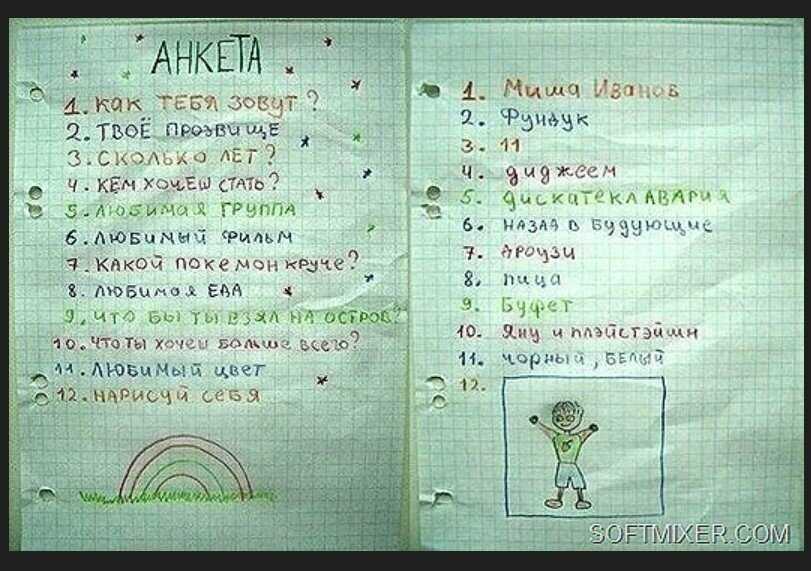 АНКЕТА
1. КАК ТЕБЯ ЗОВУТ?
2. ТВОЁ ПРОЗВИЩЕ
3. СКОЛЬКО ЛЕТ?
4. КЕМ ХОЧЕШ СТАТЬ?
5. ЛЮБИМАЯ ГРУППА
6. ЛЮБИМЫЙ ФИЛЬМ
7. КАКОЙ ПОКЕМОН КРУЧЕ?
8. ЛЮБИМАЯ ЕДА
9. ЧТО БЫ ТЫ ВЗЯЛ НА ОСТРОВ?
10. ЧТО ТЫ ХОЧЕШ БОЛЬШЕ ВСЕГО?
11. ЛЮБИМЫЙ ЦВЕТ
12. НАРИСУЙ СЕБЯ
1. Миша Иванов
2. Фундук
3. 11
4. диджеем
5. дискатека АВАРИЯ
6. НАЗАД В БУДУЮЩИЕ
7. АРОУЗИ
8. пица
9. Буфет
10. Яну и плэйстэйшн
11. чорный, БЕЛЫЙ
12.
SOFTMIXER.COM